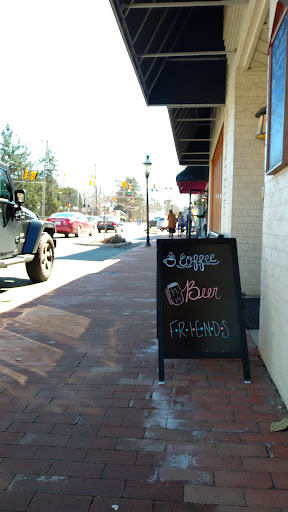 Coffee
Beer
F·R·I·E·N·D·S